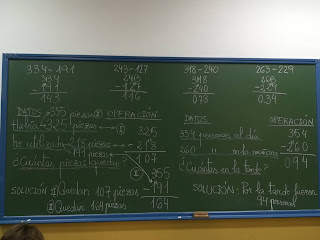 334-191
334
-191
143
243-127
243
-127
116
318-240
318
-240
078
263-229
263
-229
034
DATOS → 355 piezas (II)
Había → 325 piezas → (I)
he utilizado → 218 piezas → (I)
191 piezas
¿Cuántas piezas quedan?
OPERACIÓN
325
-218
107
(II) 355
-191
164
SOLUCIÓN: (I) Quedan 107 piezas
(II) Quedan 164 piezas
DATOS
354 personas al día
260 " " mañana
¿Cuántas en la tarde?
OPERACIÓN
354
-260
094
SOLUCIÓN: Por la tarde fueron
94 personas